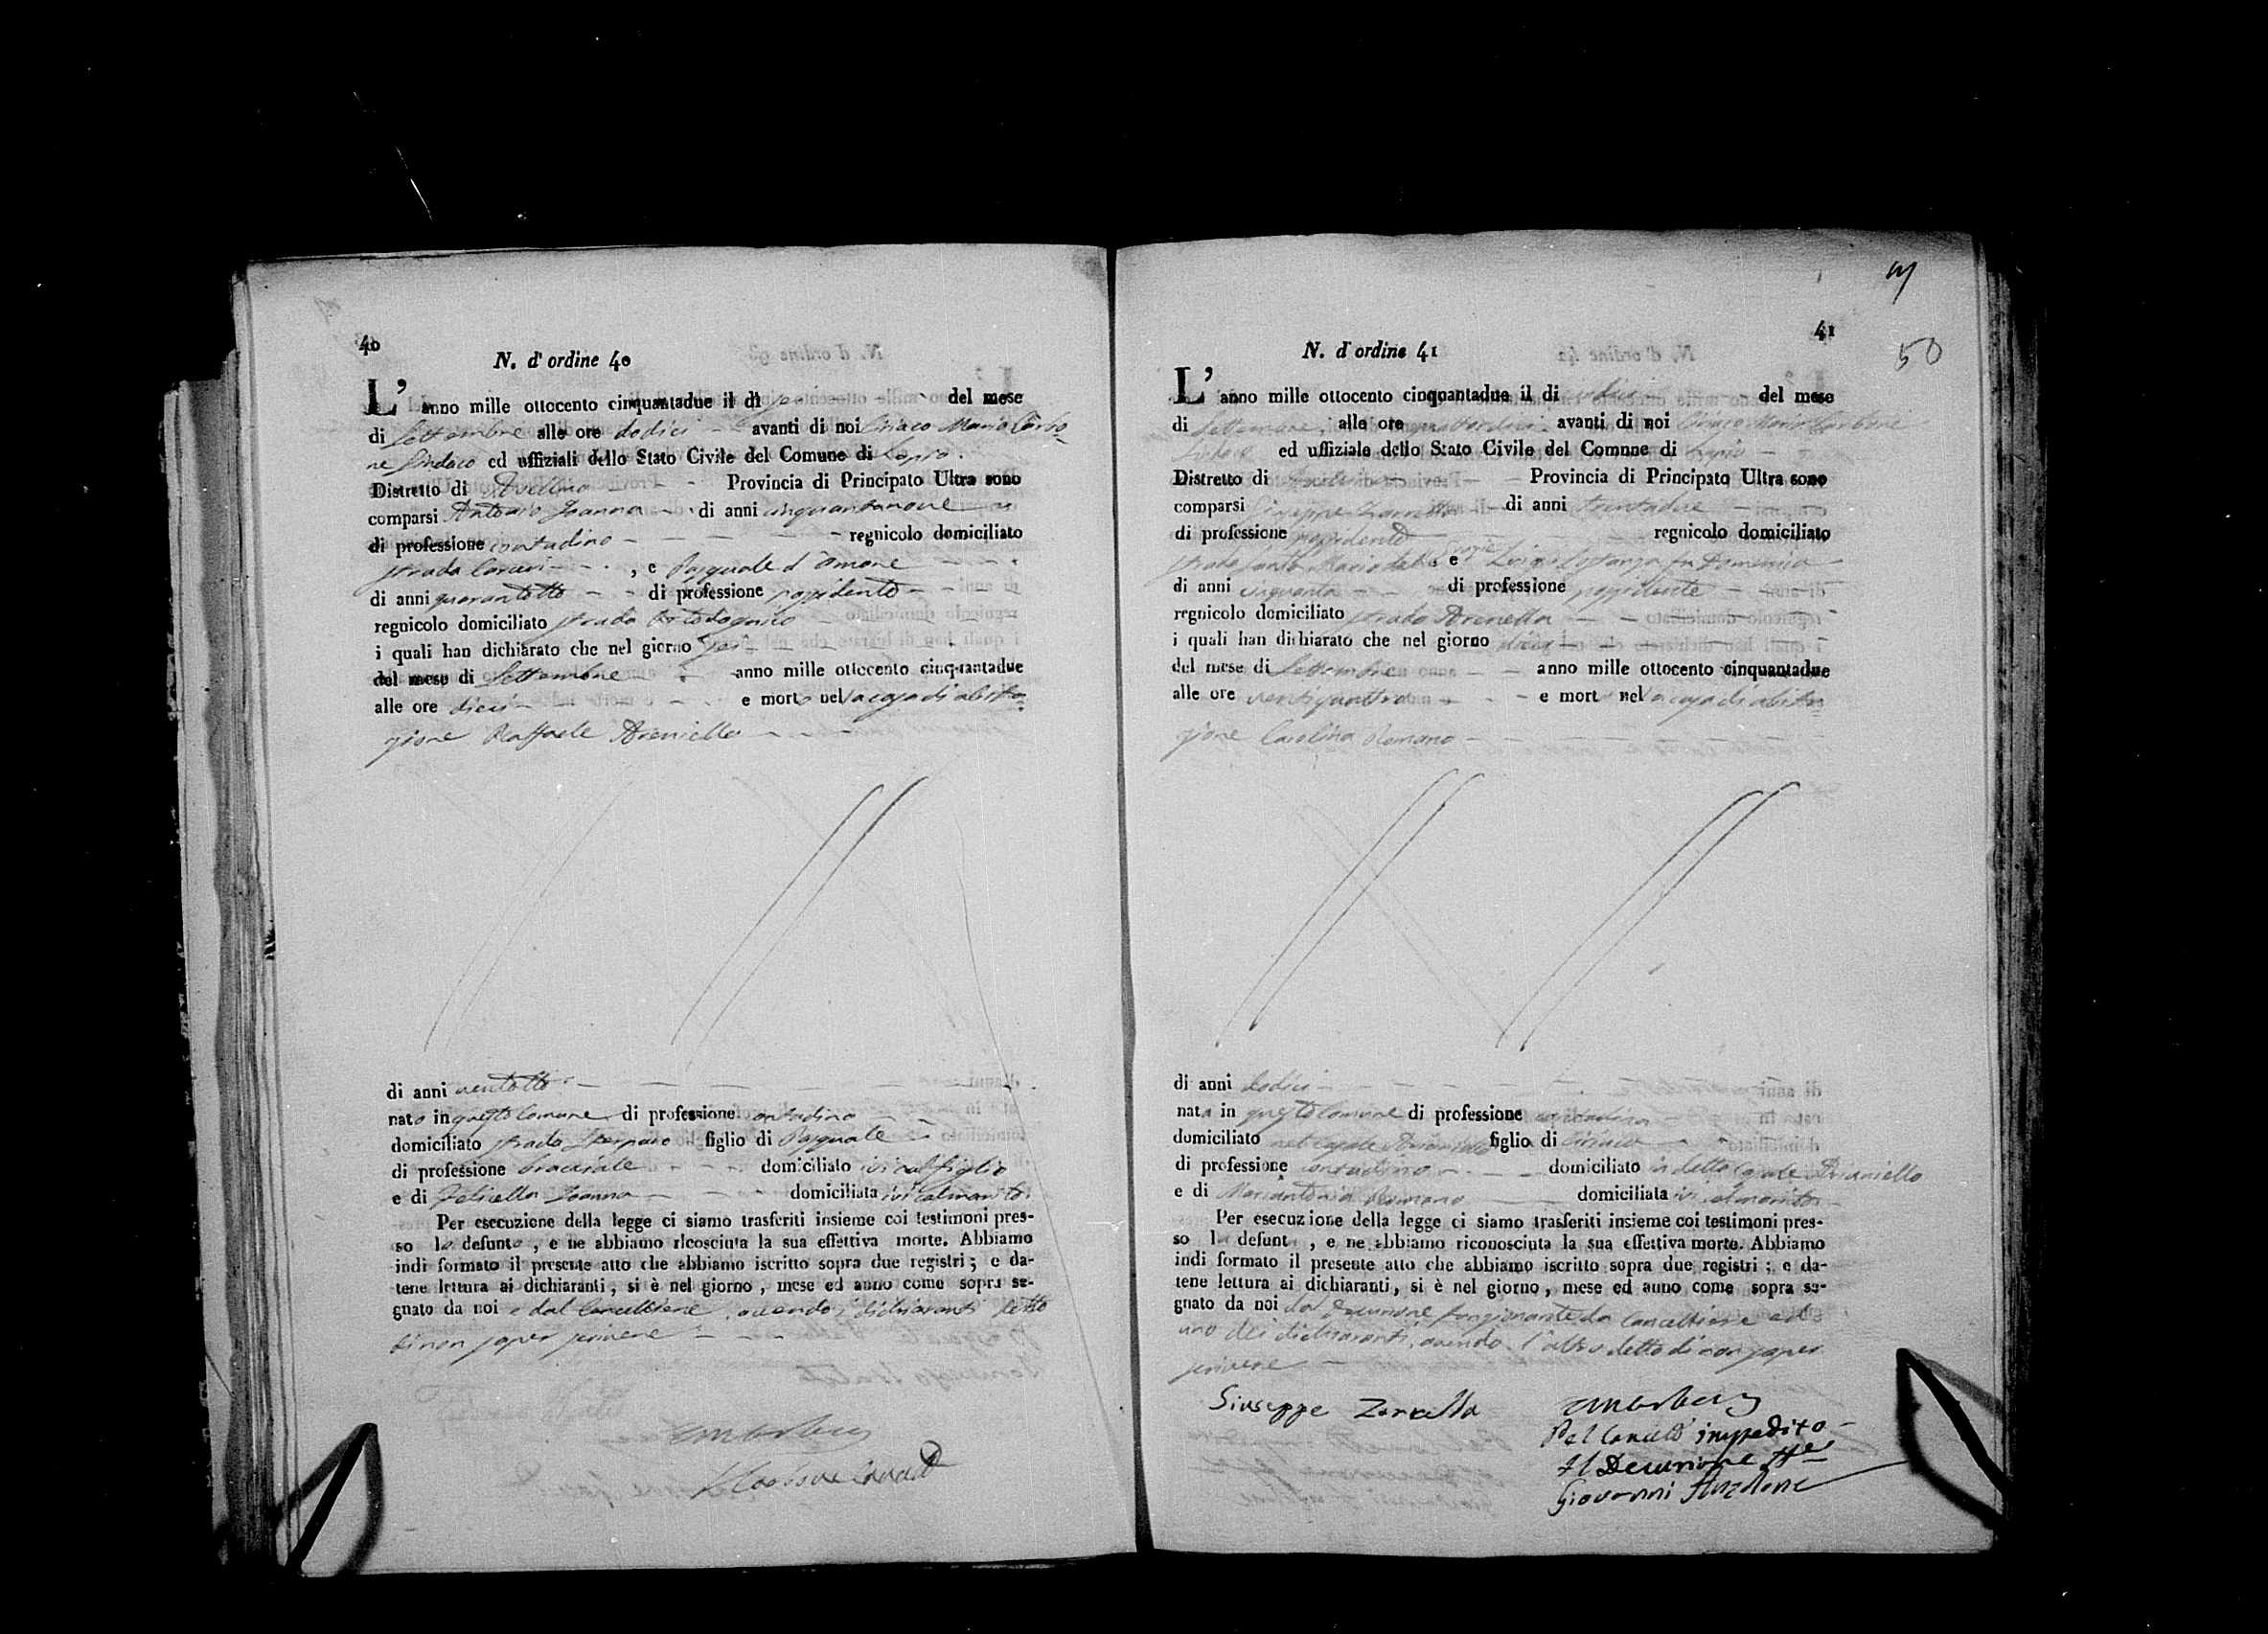 40
N. d' ordine 40
L' anno mille ottocento cinquantadue il dì del mese
di Settembre alle ore dodici avanti di noi Ciriaco Maria Carbo=
ne Sindaco ed uffiziali dello Stato Civile del Comune di Lapio.
Distretto di Avellino Provincia di Principato Ultra sono
comparsi Antonio Joanna di anni cinquantanove
di professione contadino regnicolo domiciliato
strada , e Pasquale d'Amore
di anni quarantotto di professione possidente
regnicolo domiciliato strada
i quali han dichiarato che nel giorno
del mese di Settembre anno mille ottocento cinquantadue
alle ore dieci e morto nella casa di abita=
zione Raffaele Areniello
di anni ventotto
nato in questo Comune di professione contadino
domiciliato strada figlio di Pasquale
di professione bracciale domiciliato ivi col figlio
e di Felicella Joanna domiciliata ivi col marito
Per esecuzione della legge ci siamo trasferiti insieme coi testimoni pres-
so lo defunto , e ne abbiamo ricosciuta la sua effettiva morte. Abbiamo
indi formato il presente atto che abbiamo iscritto sopra due registri ; e da-
tene lettura ai dichiaranti , si è nel giorno , mese ed anno come sopra se-
gnato da noi e dal Cancelliere, avendo i dichiaranti detto
di non saper scrivere
41
50
N. d' ordine 41
L' anno mille ottocento cinquantadue il di del mese
di Settembre alle ore avanti di noi Ciriaco Maria Carbone
Sindaco ed uffiziale dello Stato Civile del Comune di Lapio
Distretto di Avellino Provincia di Principato Ultra sono
comparsi Giuseppe Zarrella di anni trentadue
di professione possidente regnicolo domiciliato
strada Santa Maria delle Grazie e Luigi Costanza fu Domenico
di anni cinquanta di professione possidente
regnicolo domiciliato strada Arenella
i quali han dichiarato che nel giorno dieci
del mese di Settembre anno mille ottocento cinquantadue
alle ore ventiquattro e mort nella casa di abita=
zione Carolina Romano
di anni dodici
nata in questo Comune di professione contadina
domiciliato nel casale Arianiello figlia di Ciriaco
di professione contadino domiciliato in detto Casale Arianiello
e di Mariantonia Romano domiciliata ivi col marito
Per esecuzione della legge ci siamo trasferiti insieme coi testimoni pres-
so l defunt , e ne abbiamo riconosciuta la sua effettiva morte. Abbiamo
indi formato il presente atto che abbiamo iscritto sopra due registri ; e da-
tene lettura ai dichiaranti , si è nel giorno , mese ed anno come sopra se-
gnato da noi dal Decurione funzionante da Cancelliere ed
uno dei dichiaranti, avendo l'altro detto di non saper
scrivere
Giuseppe Zarrella
Pel Cancell.e impedito
Il Decurione ff.e
Giovanni Anzalone